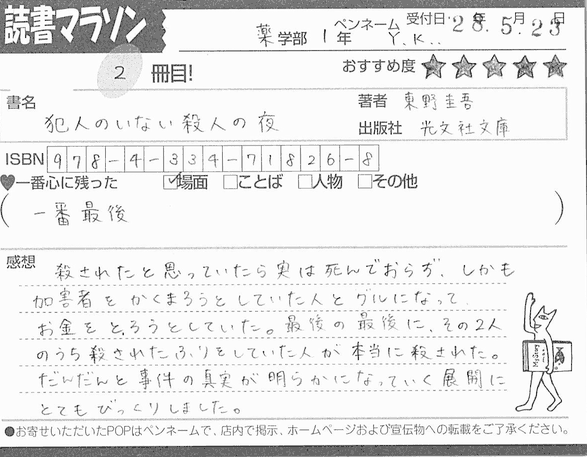 読書マラソン
薬学部 1年 ペンネーム Y.K.. 受付日 28年5月23日
2 冊目!
おすすめ度 ★★★★★
書名 犯人のいない殺人の夜
著者 東野圭吾
出版社 光文社文庫
ISBN 978-4-334-71826-8
♥一番心に残った ☑場面 □ことば □人物 □その他
(一番最後)
感想
殺されたと思っていたら実は死んでおらず、しかも
加害者をかくまろうとしていた人とグルになって
お金をとろうとしていた。最後の最後に、その2人
のうち殺されたふりをしていた人が本当に殺された。
だんだんと事件の真実が明らかになっていく展開に
とてもびっくりしました。
●お寄せいただいたPOPはペンネームで、店内で掲示、ホームページおよび宣伝物への転載をご了承ください。